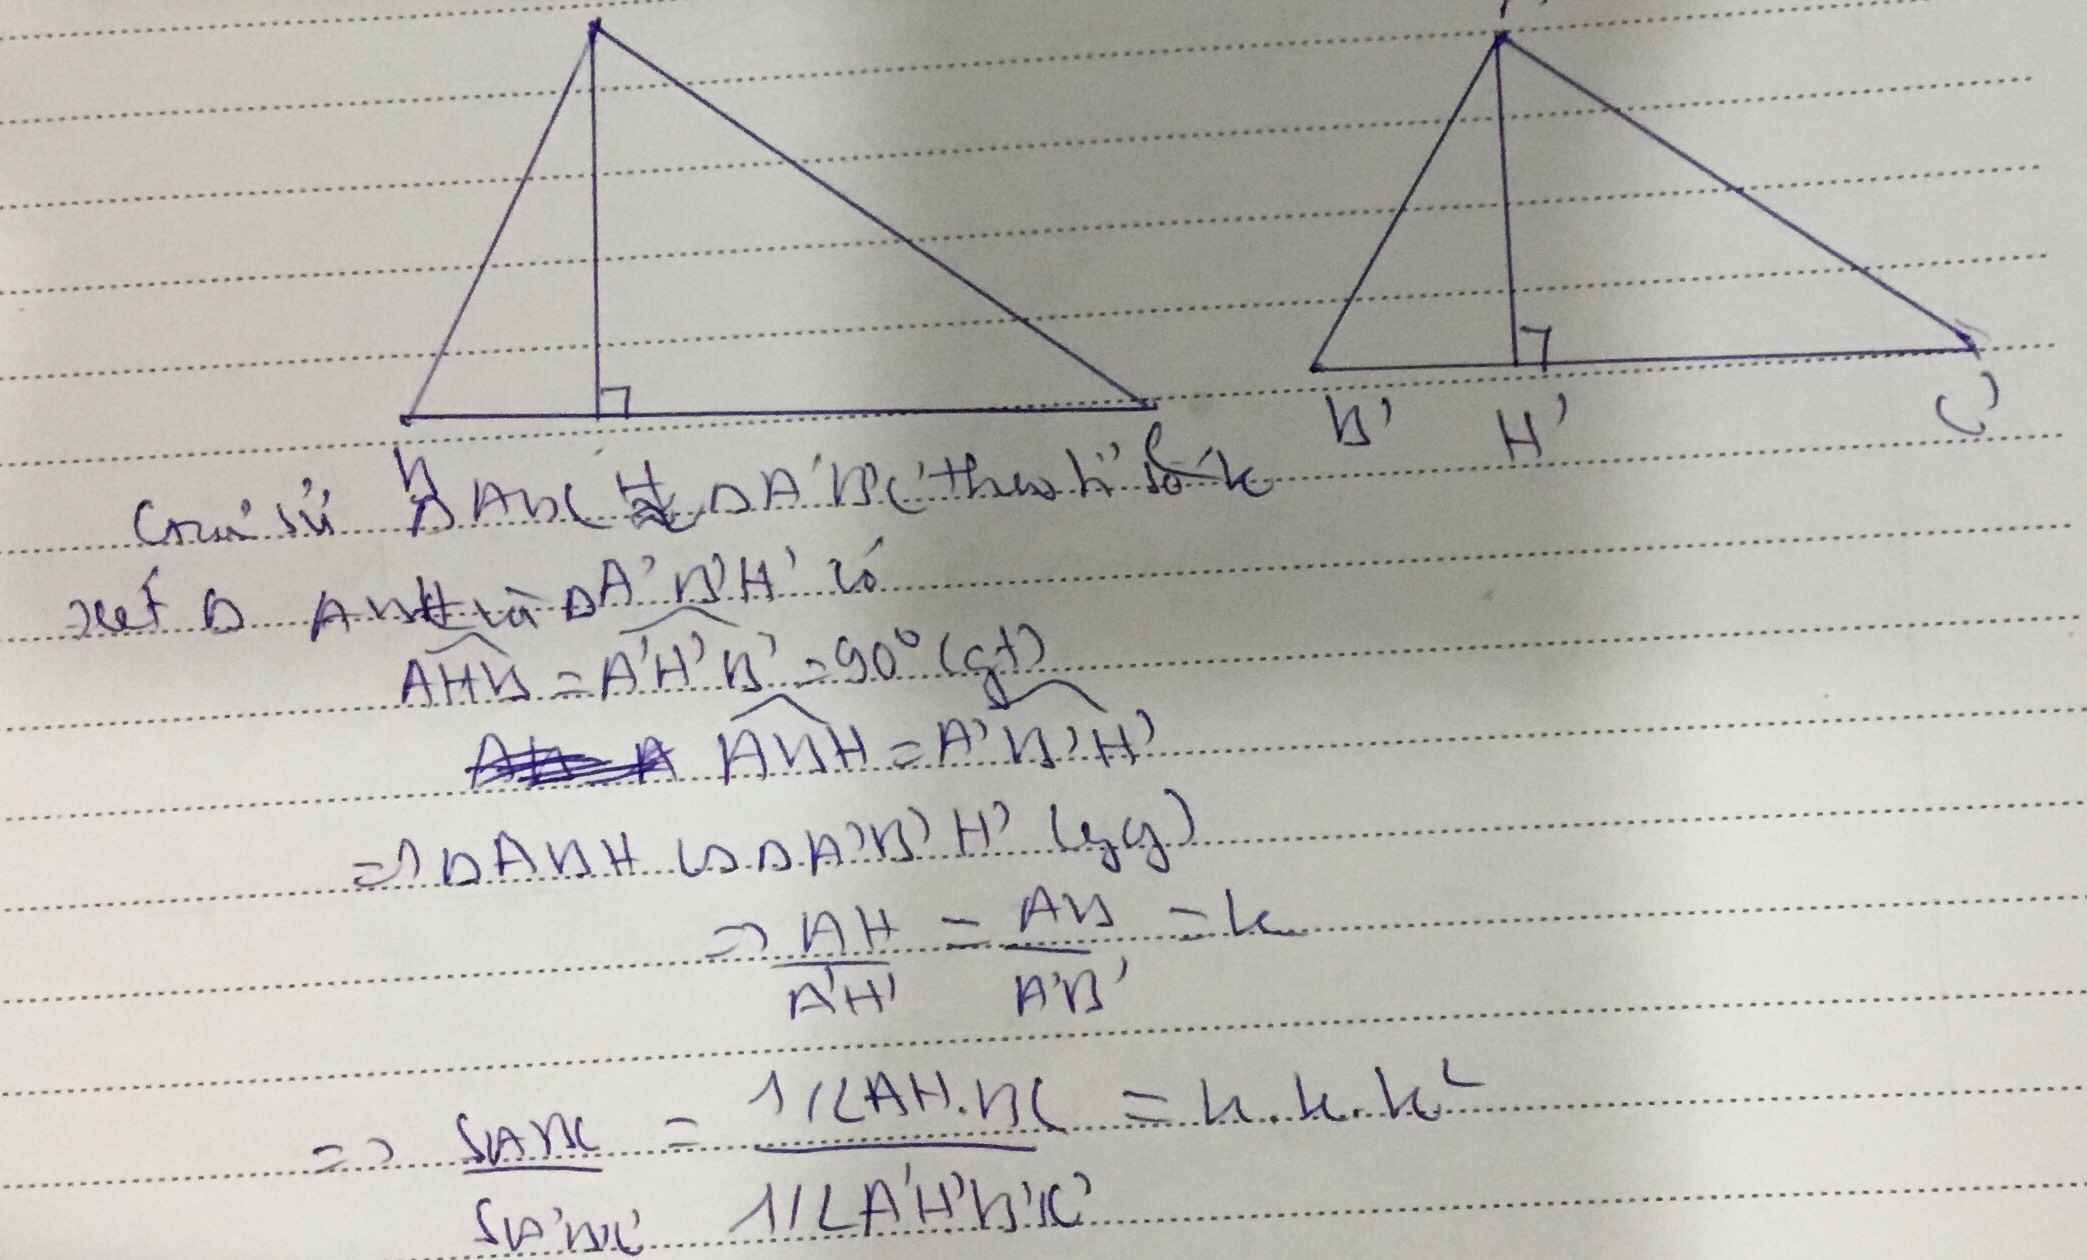 B' H' C'
B H C
Giả sử Δ ABC ∽ Δ A'B'C' theo hệ số k
xét Δ ABH và Δ A'B'H' có
AHB = A'H'B' = 90° (gt)
ABH = A'B'H'
=> Δ ABH ∽ Δ A'B'H' (gg)
=> AH/A'H' = AB/A'B' = k
=> SABC/SA'B'C' = 1/2AH.BC / 1/2A'H'B'C' = k.k.k²